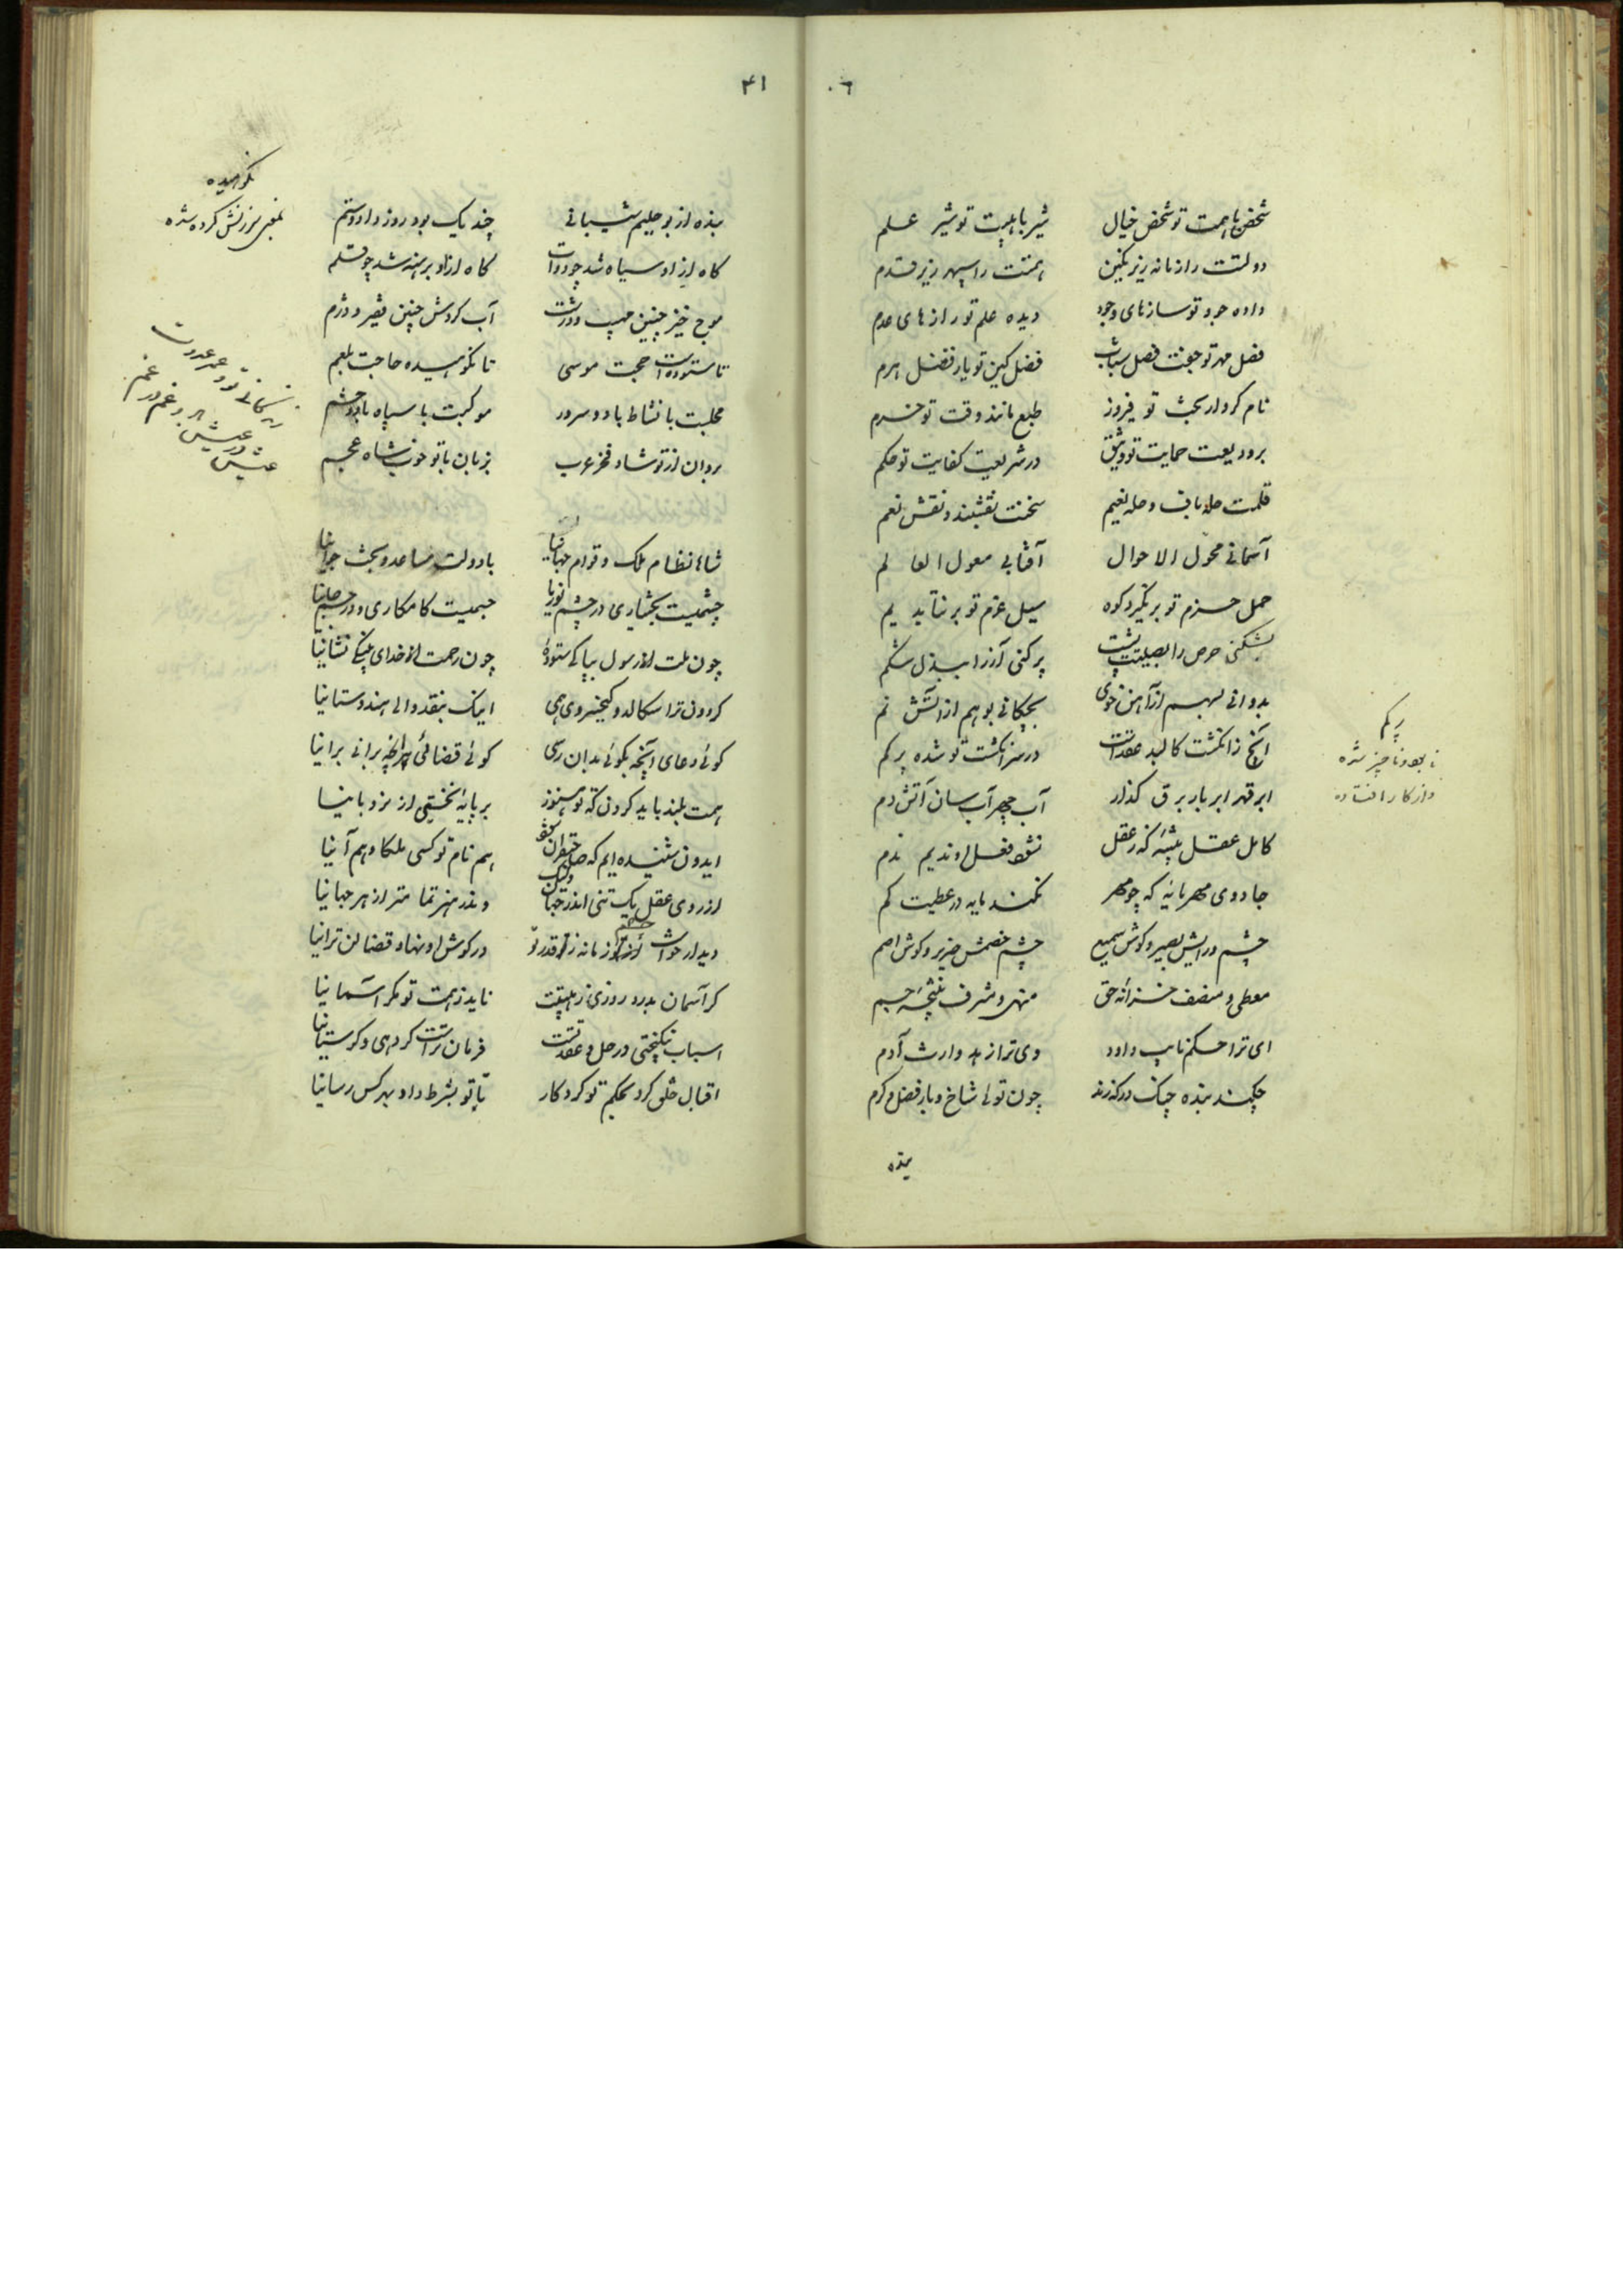 ۰٦
شخص با همت تو شخص خیال    شیر با هیبت تو شیر علم
دولتت را زمانه زیر نکین    همتت را سپهر زیر قدم
داده جود تو سازهای وجود    دیده علم تو رازهای عدم
فصل مهر تو جفت فصل شباب    فضل کین تو یار فضل هرم
نام کردار بخت تو فیروز    طبع مانند وقت تو خرم
بر ودیعت حمایت تو وثیق    در شریعت کفایت تو حکم
قلمت حله باف و حله نعیم    سخنت نقشبند و نقش نعم
آسمانی محول الاحوال    آفتابی معول العالم
حمل حزم تو برنکیرد کوه    سیل عزم تو برنتابد یم
بشکنی حرص را بصلیت پشت    پر کنی آز را ببذل شکم
بدوانی بسهم از آهن خوی    بچکانی بوهم از آتش نم
آنچ زانکشت کالبد عقدتست    در سر انکشت تو شده پرکم
ابر قهر ابر بار برق کذار    آب چهر آب سان آتش دم
کامل عقل پیشه کز عقل    نشود فعل او ندیم ندم
جادوی مهربانیه که چو مهر    نکند مایه در عطیت کم
چشم درایش بصیر و کوش سمیع    چشم خصمش ضریر و کوش اصم
معطی و منصف خزانه حق    منهی و مشرف نتیجه جسم
ای ترا حکم نایب داود    وی ترا زهد وارث آدم
چکند بنده چنک در کزند    چون توئی شاخ و بار فضل و کرم
بنده
پرکم
نابود و ناچیز شده
و از کار افتاده
۴۱
بنده از بو حلیم شیبانی    چند یک بود روز داد و ستم
کاه ازاد سیاه شد چو دوات    کاه ازاد برهنه شد چو قلم
موج خیز چنین مهیب و درشت    آب کردش چنین فقیر و دژم
تا ستوده است حجت موسی    تا نکوهیده حاجت بلعم
مجلست با نشاط باد و سرور    موکبت با سپاه باد و حشم
بروان از تو شاد فخر عرب    بزبان با تو خوب شاه عجم
شاها نظام ملک و قوام جهانیا    با دولت مساعد و بخت جوانیا
چشمیت بختیاری در چشم نوریا    جسمیت کامکاری و در جسم جانیا
چون ملت از رسول بپاکی ستودهٔ    چون رحمت از خدای بنیکی نشانیا
کردون ترا سکالد و کیخسروی همی    اینک بنقد والی هندوستانیا
کوئی دعای آنچه بکوئی بدان رسی    کوئی قضائی هرانچه برانی برانیا
همت بلند باید کردن که تو هنوز    بر پایهٔ نخستی از نردبانیا
ایدون شنیده ایم که صاحبقران    هم نام تو کسی ملکا و هم آنیا
از روی عقل یک تنی اندر جهان ولیک    و ندر هنر تمامتر از هر جهانیا
دیدار خواست چشم زمانه ز قدر تو    در کوش او نهاد قضا لن ترانیا
کر آسمان بدرد روزی ز هیبتت    ناید ز همت تو مکر آسمانیا
اسباب نیکبختی در حل و عقد تست    فرمان تراست کر دهی و کر ستانیا
اقبال خلق کرد بحکم تو کردکار    تا تو بشرط داد بهر کس رسانیا
نکوهیده
بمعنی سرزنش کرده شده